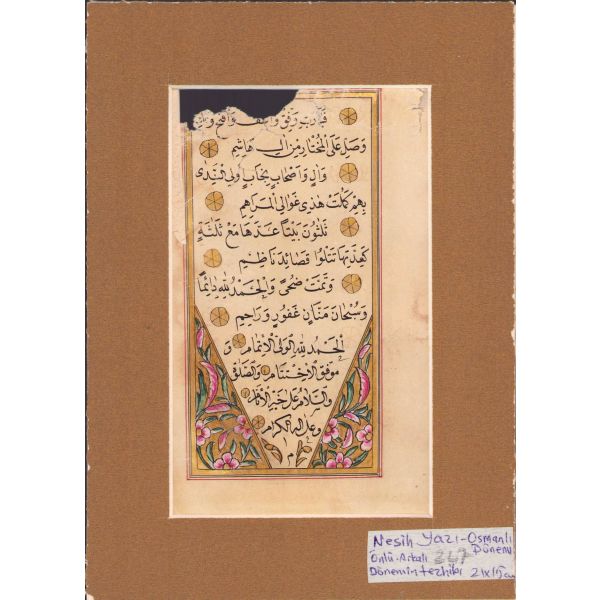 فيارب وفق واعف وافتح
وصل على المختار من ال هاشم
وال واصحاب نجاب ولي الندى
بهم كملت هذى غوالي المراهم
ثلثون بيتا عدها مع ثلثة
كعدتها تتلوا قصائد ناظم
وتمت ضحى والحمد لله دائما
وسبحان منان غفور وراحم
الحمد لله الولى الاتمام و
موفق الاختتام والصلوة
والسلام على خير الانام
وعلى اله الكرام
م
Nesih Yazı-Osmanlı
Önlü-Arkalı 267 Dönemi
Dönemin tezhibi 21x15cm